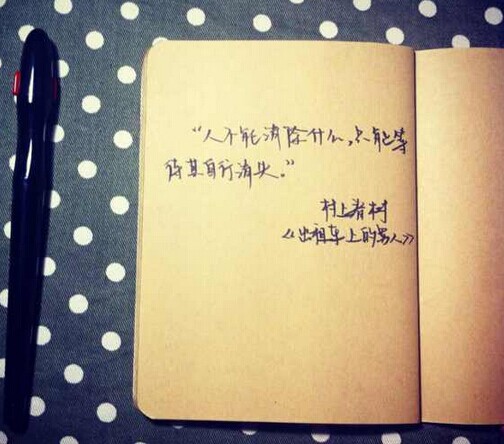 “人不能消除什么，只能等
待其自行消失。”
村上春树
《出租车上的男人》